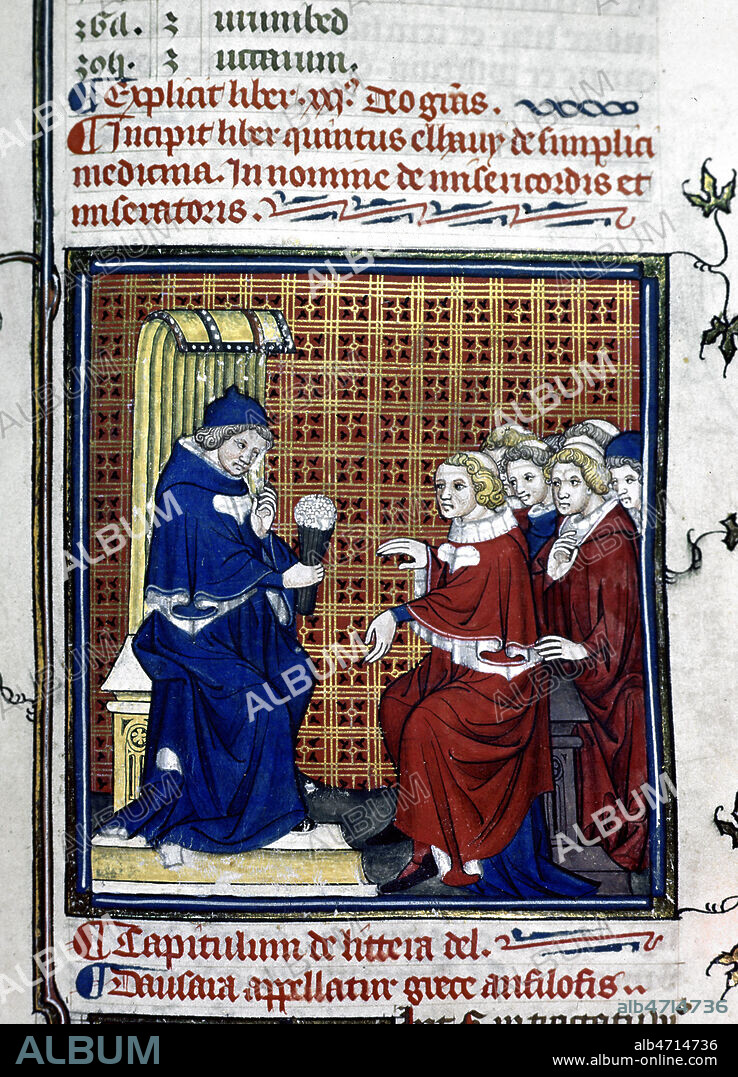 Explicit liber. xxs. Deo grās.
Incipit liber quintus elhauy de simplici
medicina. In nomine de misericordis et
miseratoris.
ALBUM
Capitulum de littera del.
Dausara appellatur grece ansilofis..
alb4714736
ALBUM
alb4714736
www.album-online.com